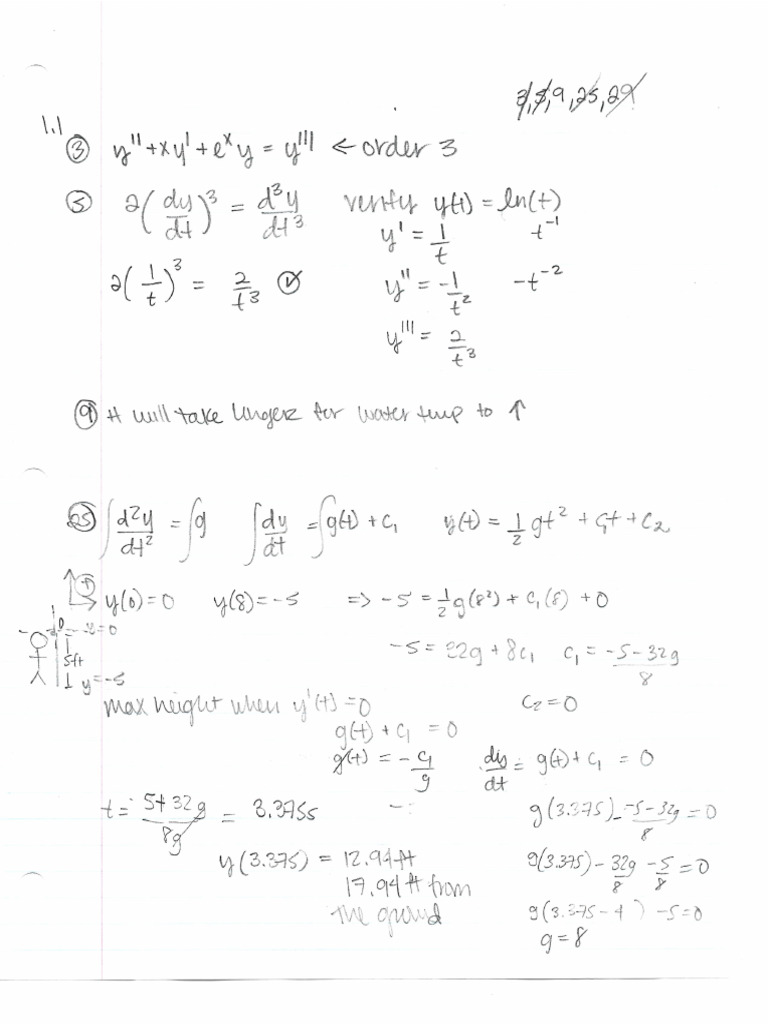 3, 5, 9, 25, 29
1.1
③ y'' + xy' + e^x y = y''' ← order 3
⑤ 2(dy/dt)^3 = d^3y/dt^3 verify y(t) = ln(t)
y' = 1/t t^-1
2(1/t)^3 = 2/t^3 ✓ y'' = -1/t^2 -t^-2
y''' = 2/t^3
⑨ It will take longer for water temp to ↑
㉕ ∫ d^2y/dt^2 = ∫ g ∫ dy/dt = ∫ g(t) + c₁ y(t) = 1/2 gt^2 + c₁t + c₂
+
y(0) = 0 y(8) = -5 => -5 = 1/2 g(8^2) + c₁(8) + 0
5ft
y = -5
-5 = 32g + 8c₁ c₁ = -5 - 32g / 8
max height when y'(t) = 0 c₂ = 0
g(t) + c₁ = 0
g(t) = - c₁/g dy/dt = g(t) + c₁ = 0
t = 5 + 32g / 8g = 3.375s g(3.375) -5 - 32g / 8 = 0
y(3.375) = 12.94 ft g(3.375) - 32g/8 - 5/8 = 0
17.94 ft from
the ground g(3.375 - 4) - 5 = 0
g = 8